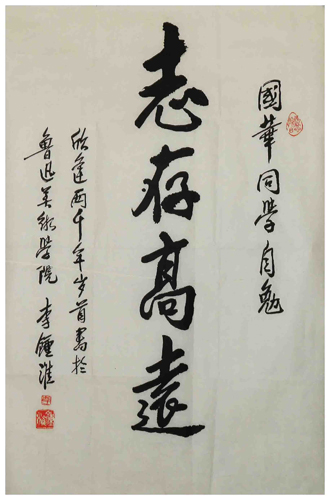 國華同学自勉
志存高遠
欣逢兩千年岁首書於
魯迅美術学院 李鍾淮